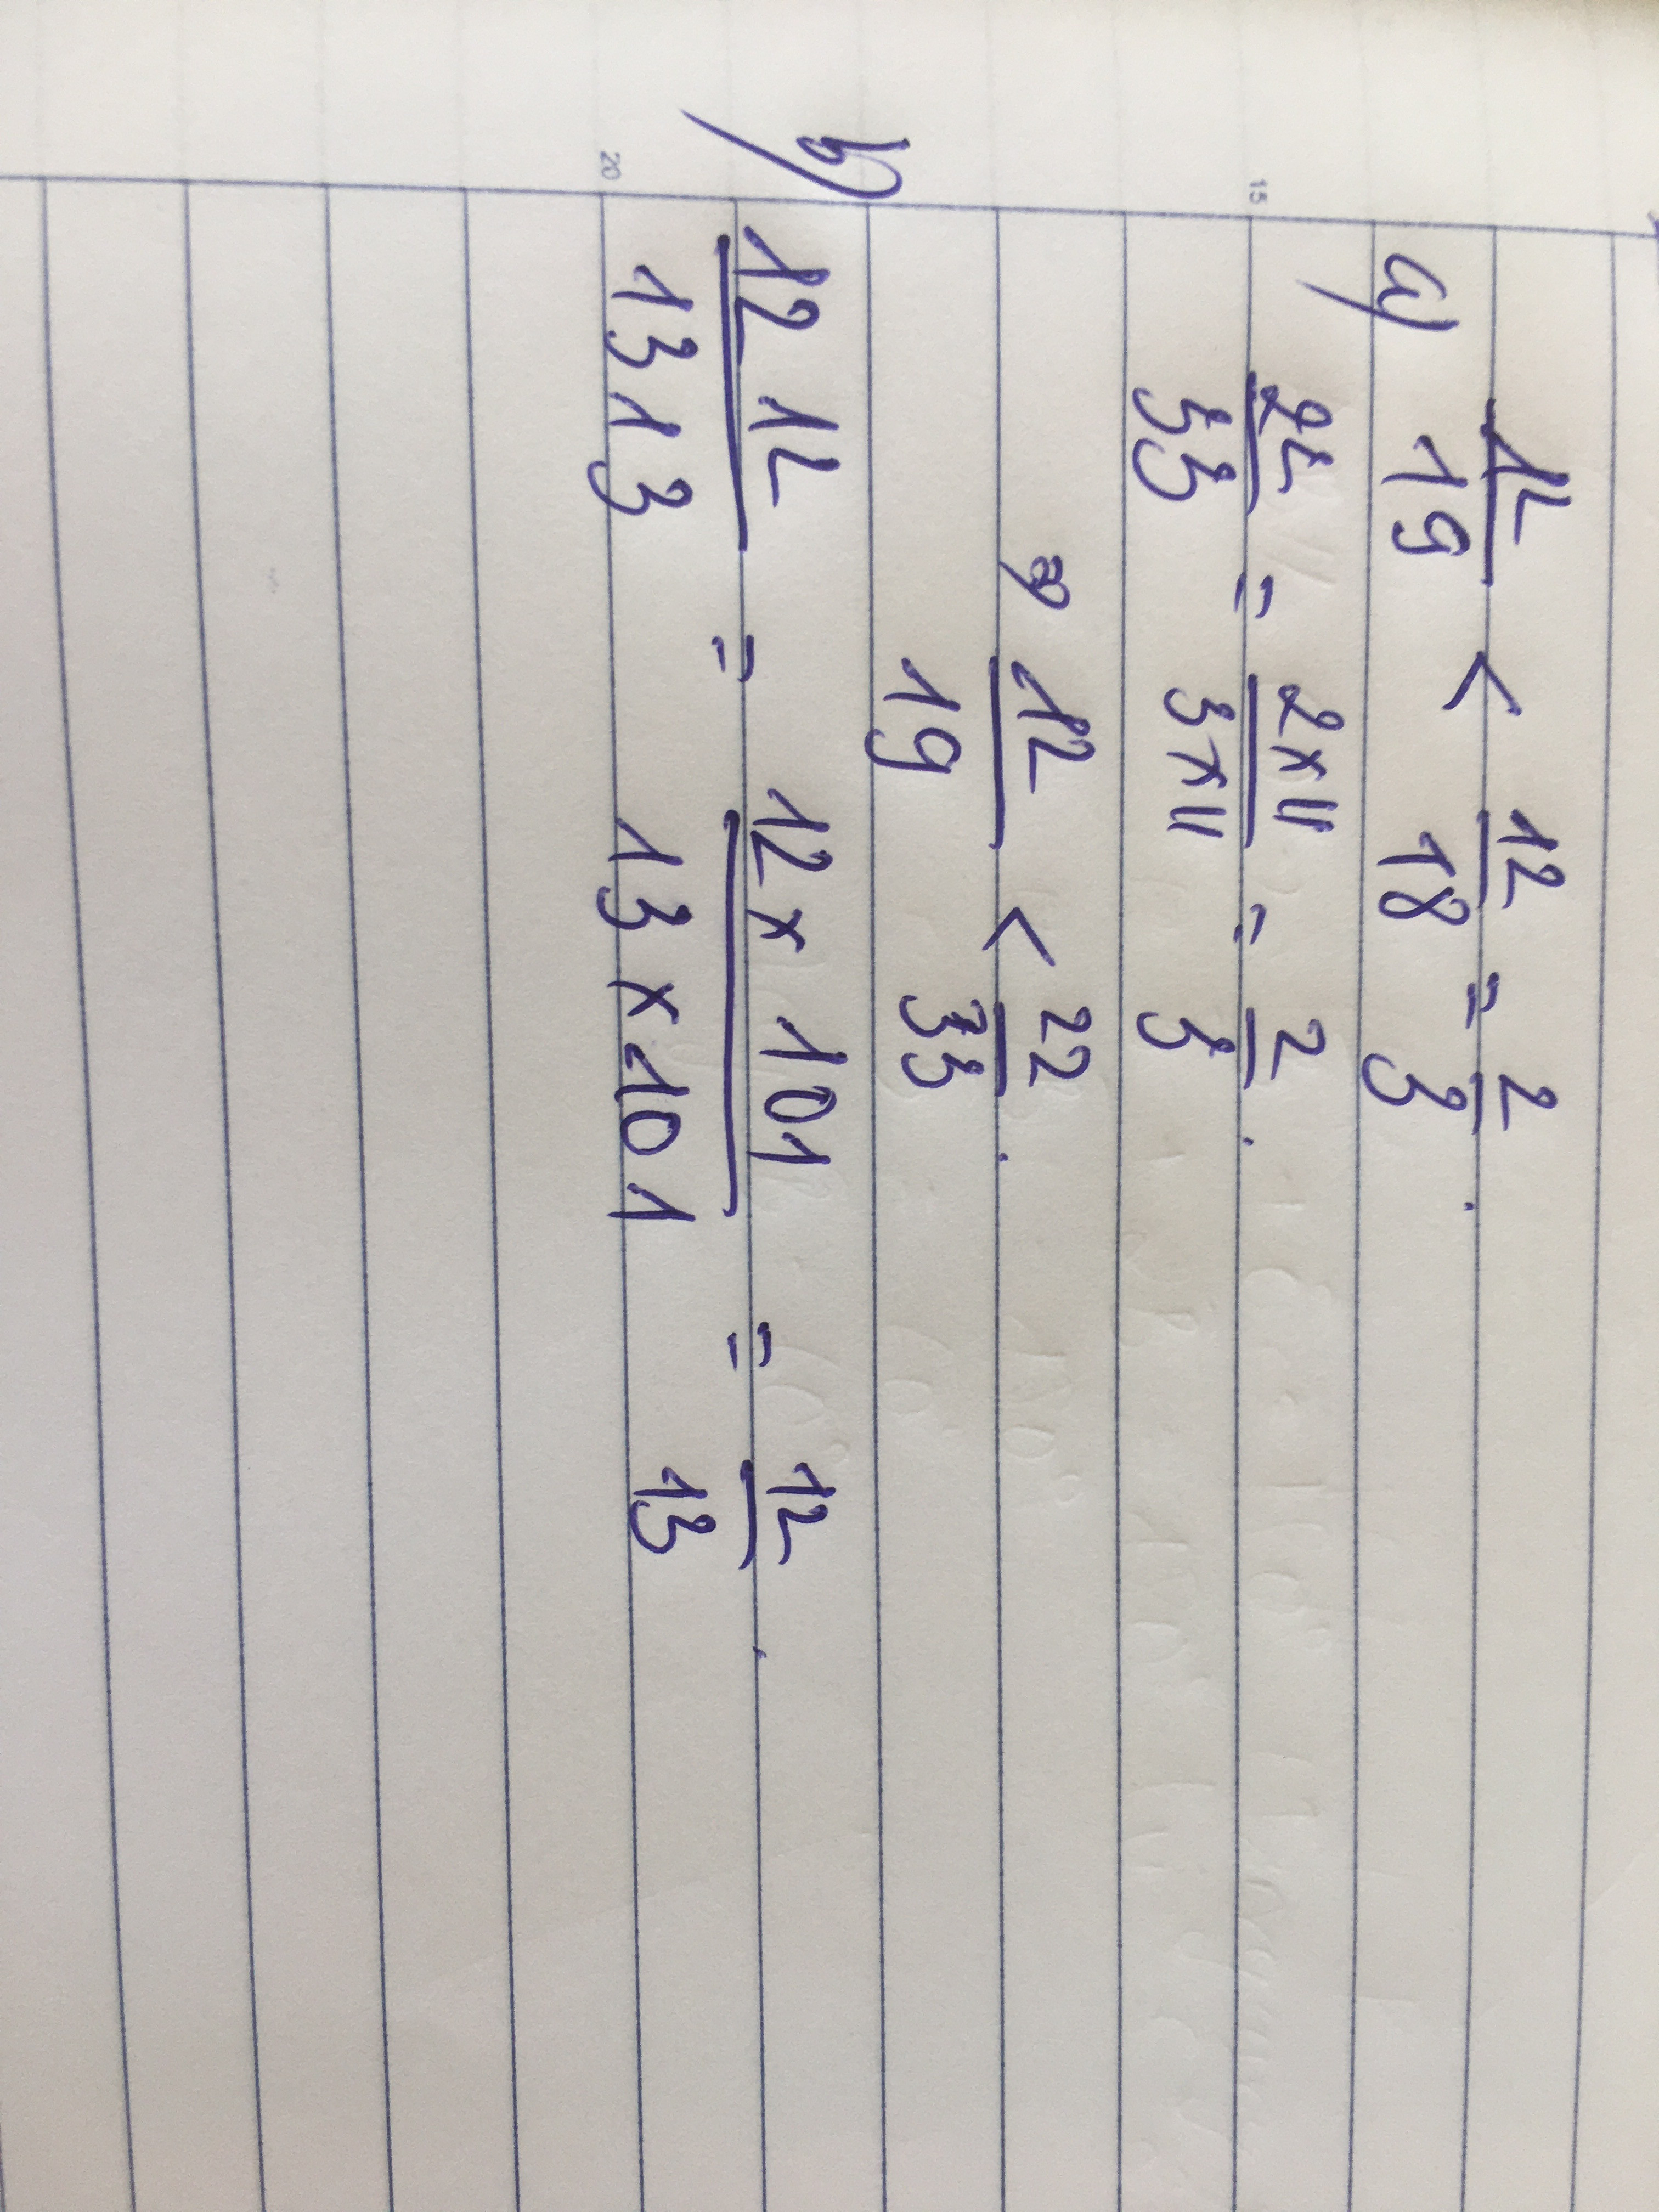 a) 12/19 < 12/18 = 2/3.
15
22/33 = 2x11/3x11 = 2/3.
12/19 < 22/33.
b) 1212/1313 = 12 x 101/13 x 101 = 12/13.
20